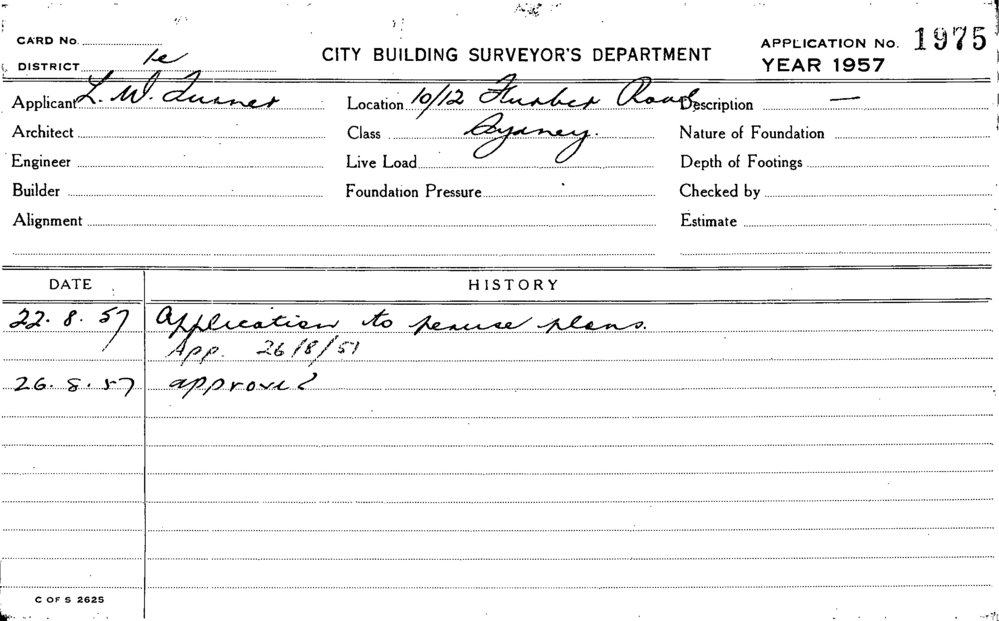 CARD No.
DISTRICT 1e
CITY BUILDING SURVEYOR'S DEPARTMENT
APPLICATION No. 1975
YEAR 1957
Applicant L. W. Turner Location 10/12 Furber Road Description —
Architect Class Sydney. Nature of Foundation
Engineer Live Load Depth of Footings
Builder Foundation Pressure Checked by
Alignment Estimate
DATE HISTORY
22. 8. 57 Application to peruse plans.
App. 26/8/57
26. 8. 57 approved
C OF S 2625